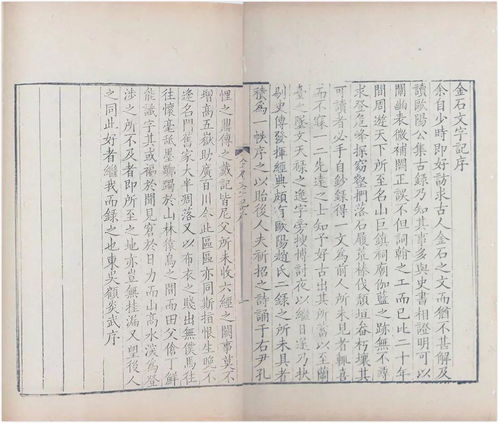 金石文字記序
余自少時即好訪求古人金石之文而猶不甚解及
讀歐陽公集古錄乃知其事多與史書相證明可以
闡幽表微補闕正誤不但詞翰之工而已比二十年
間周遊天下所至名山巨鎮祠廟伽藍之跡無不尋
求登危峰探窈壑捫落石履荒榛伐頹垣畚朽壤其
可讀者必手自鈔錄得一文為前人所未見者輒喜
而不寐一二先達之士知予好古出其所蓄以至蘭
臺之墜文天祿之逸字旁搜博討夜以繼日遂乃抉
剔史傳發揮經典頗有歐陽趙氏二錄之所未具者
積為一帙序之以貽後人夫祈招之詩誦于右尹孔
悝之鼎傳之戴記皆尼父所未收六經之闕事莫不
增高五嶽助廣百川今此區區亦同斯指恨生晚不
逢名門舊家大半凋落又以布衣之賤出無僕馬往
往懷毫舐墨躑躅於山林猿鳥之間而田父傖丁鮮
能識字其或褊於聞見窘於日力而山高水深為登
涉之所不及者即所至之地亦豈無挂漏又望後人
之同此好者繼我而錄之也東吳顧炎武序